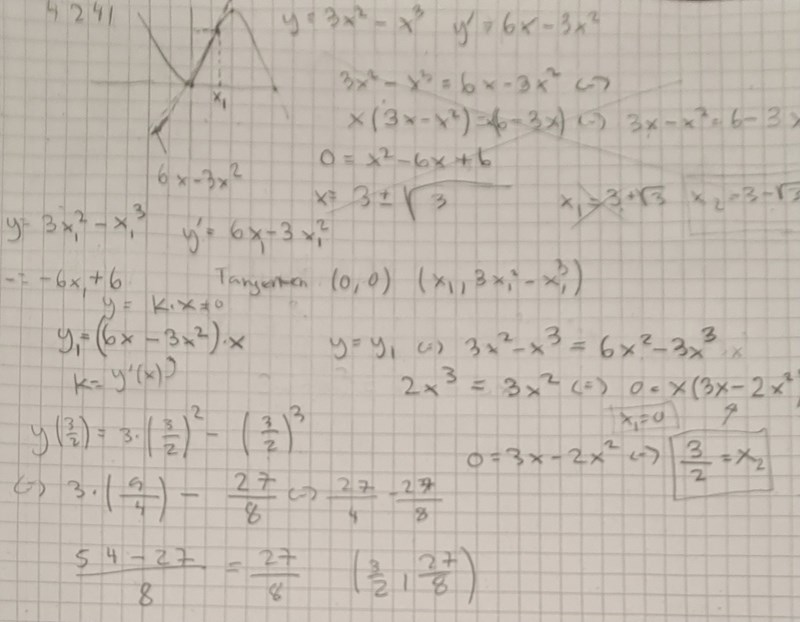 4241
y = 3x² - x³ y' = 6x - 3x²
3x² - x³ = 6x - 3x² <->
x(3x - x²) = x(6 - 3x) <-> 3x - x² = 6 - 3x
0 = x² - 6x + 6
x₁
6x - 3x²
x = 3 ± √3 x₁ = 3 + √3 x₂ = 3 - √3
y = 3x₁² - x₁³ y' = 6x₁ - 3x₁²
-6x₁ + 6 (0,0) (x₁, 3x₁² - x₁³)
y = k·x + 0
y₁ = (6x - 3x²)·x y = y₁ <-> 3x² - x³ = 6x² - 3x³
k = y'(x)
2x³ = 3x² <=> 0 = x(3x - 2x²)
x₁ = 0
y(3/2) = 3·(3/2)² - (3/2)³
0 = 3x - 2x² <-> 3/2 = x₂
<-> 3·(9/4) - 27/8 <-> 27/4 - 27/8
54 - 27/8 = 27/8 (3/2, 27/8)